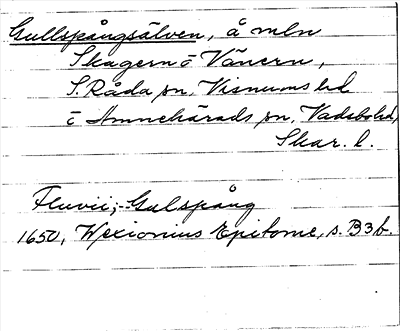 Gullspångsälven, å mln
Skagern o Vänern,
S. Råda sn, Visnums hd
o Amnehärads sn, Vadsbo hd,
Skar. l.
Fluvii; - Gulspång
1650, Wexionius Epitome, s. B3b.